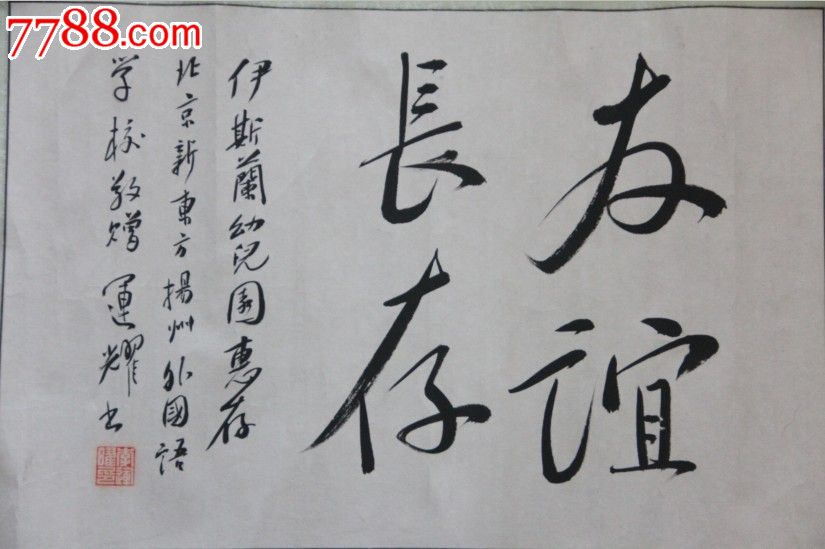 7788.com
友誼
長存
伊斯蘭幼兒園惠存
北京新東方揚州外國語
学校敬赠 運耀书